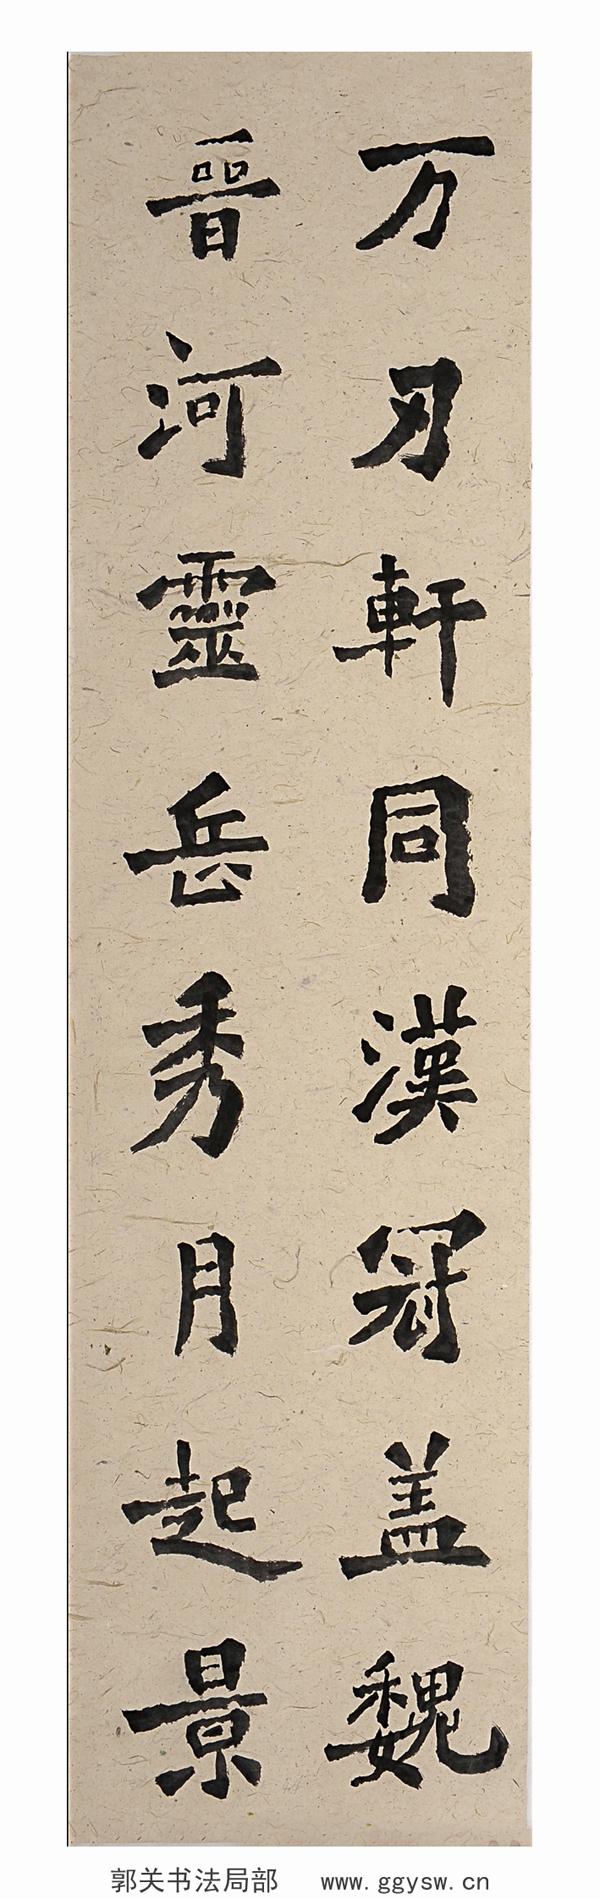 万刃軒同漢冠盖魏
晋河靈岳秀月起景
郭关书法局部 www.ggysw.cn